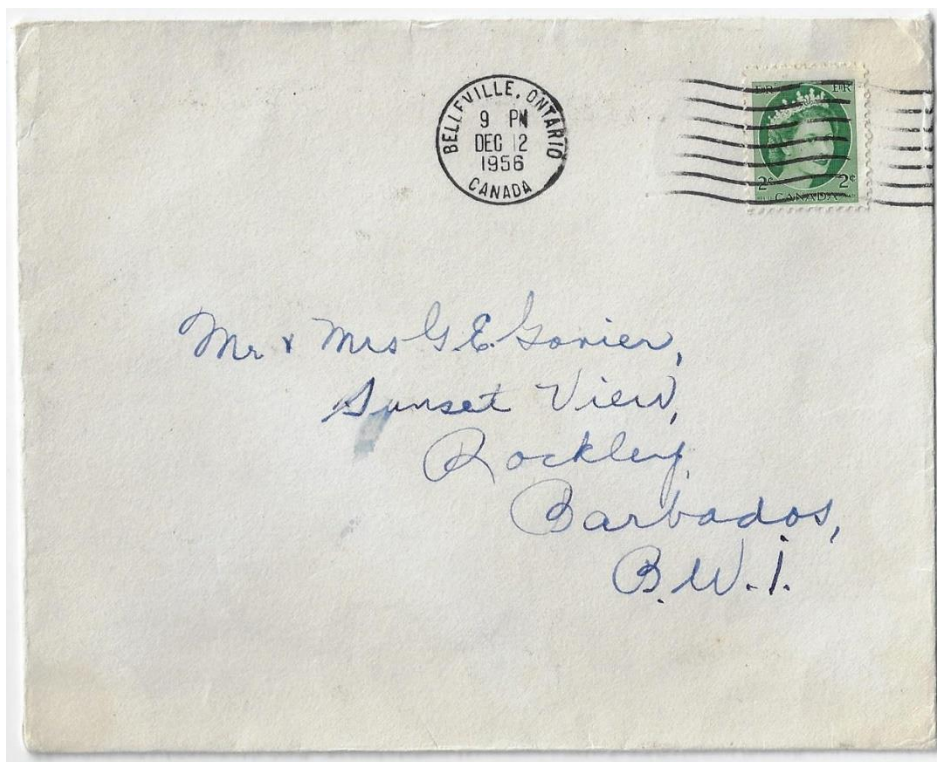 BELLEVILLE, ONTARIO
9 PM
DEC 12
1956
CANADA
E R E R
2¢ 2¢
CANADA
Mr & Mrs G.E. Govier,
Sunset View,
Rockley,
Barbados,
B.W.I.